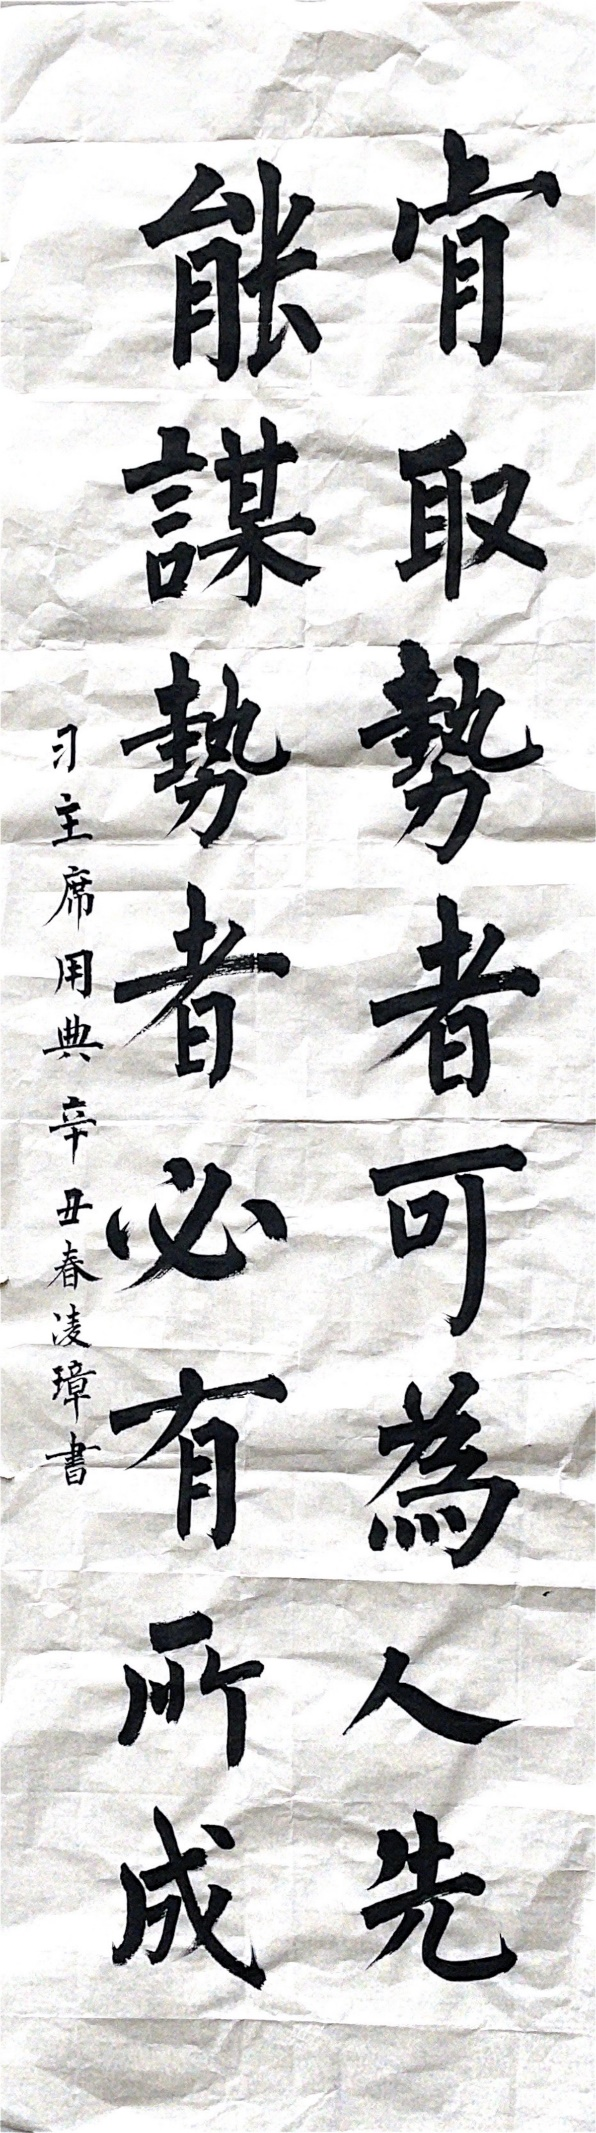 肯取勢者可為人先
能謀勢者必有所成
习主席用典辛丑春凌璋書